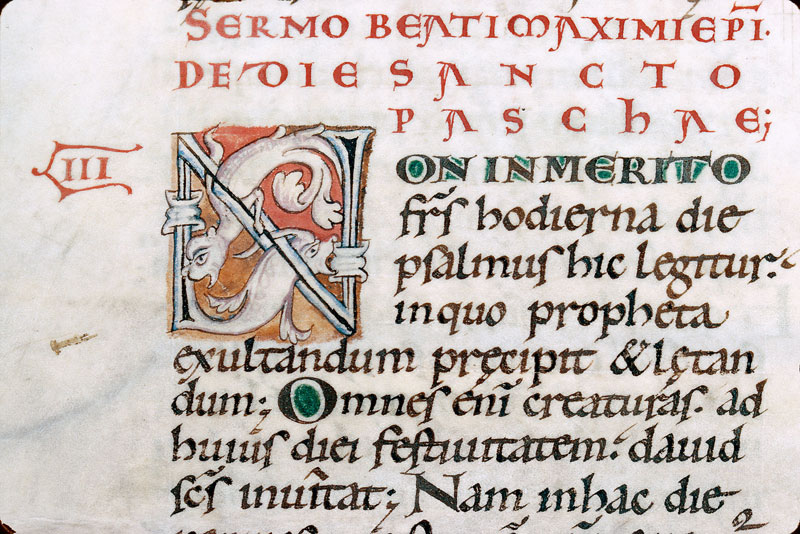 SERMO BEATI MAXIMI EPĪ.
DE DIE SANCTO
PASCHAE;
III
NON INMERITO
frs̄ hodierna die
psalmus hic legitur.
inquo propheta
exultandum pręcipit & lętan
dum; Omnes enī creaturas. ad
huius diei festiuitatem. dauid
scs̄ inuītat; Nam inhac die